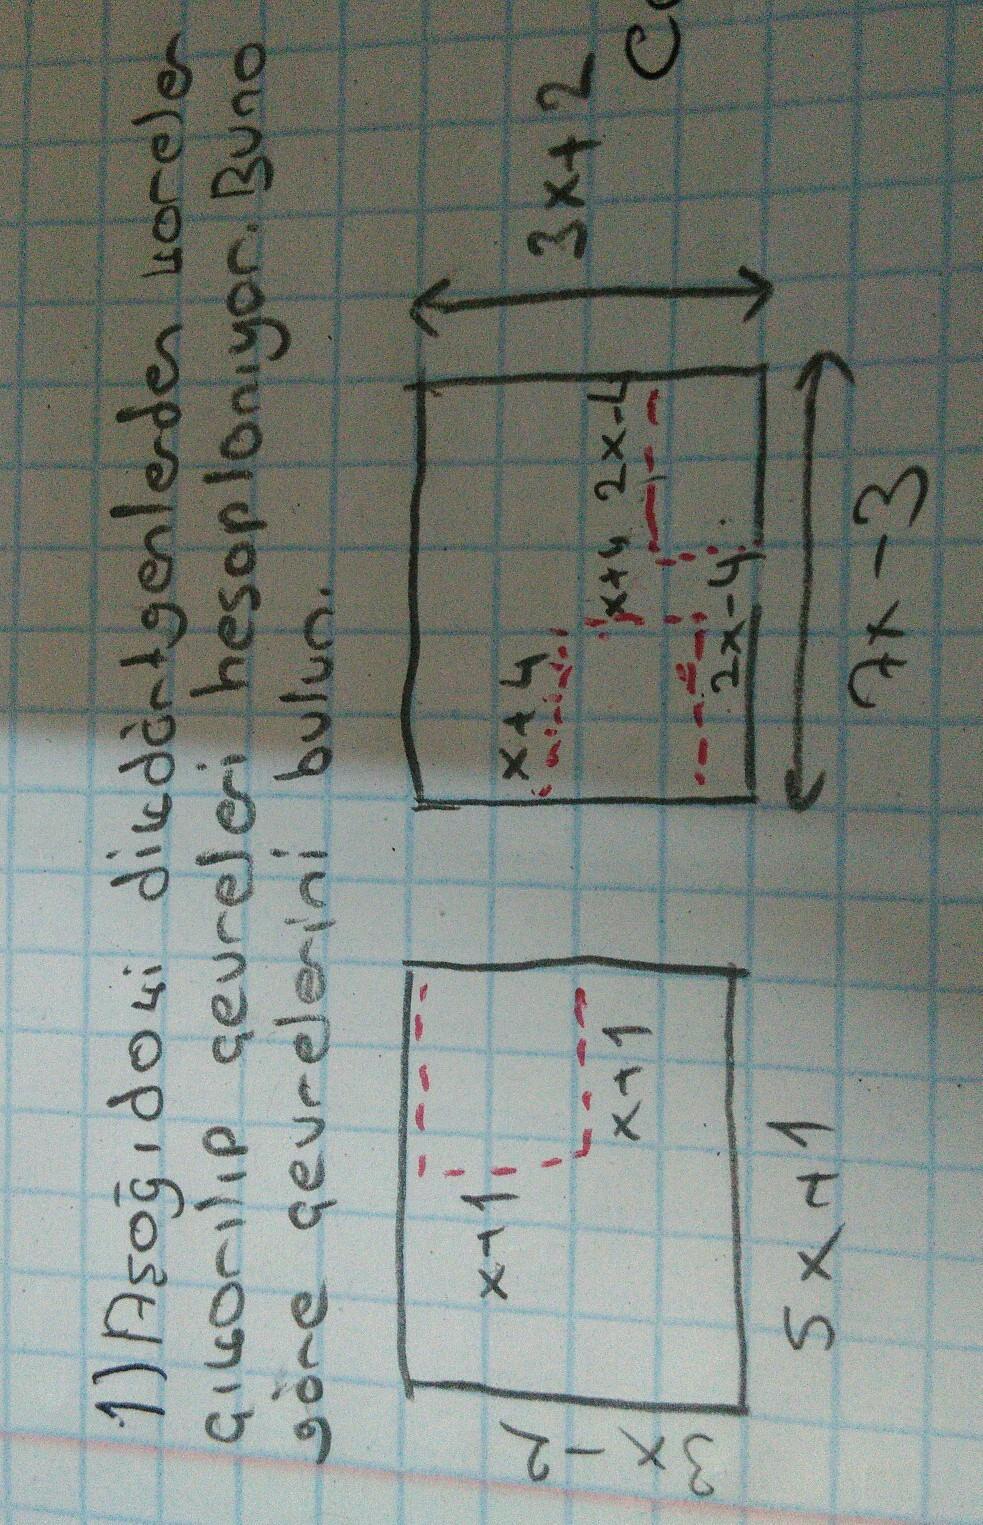 1) Aşağıdaki dikdörtgenlerden kareler
çıkarılıp çevreleri hesaplanıyor. Buna
göre çevrelerini bulun.
3x-2
x+1
x+1
5x+1
x+4
x+4
2x-4
2x-4
3x+2
7x-3